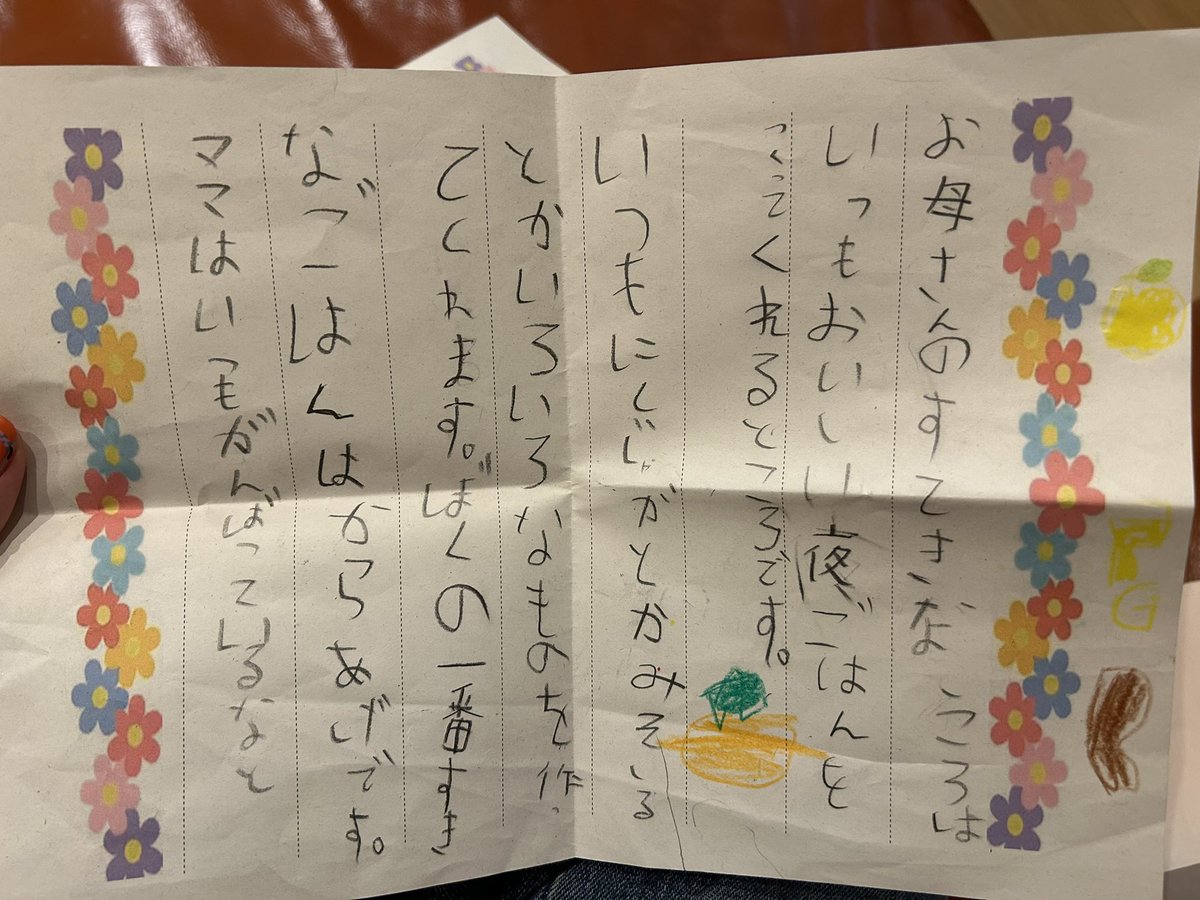 お母さんのすてきなところは
いつもおいしい夜ごはんを
つくってくれるところです。
いつもにくじゃがとかみそしる
とかいろいろなものを作っ
てくれます。ぼくの一番すき
なごはんはからあげです。
ママはいつもがんばっているなと